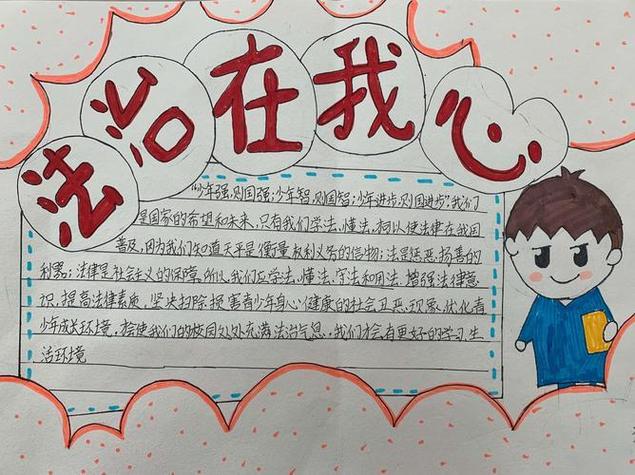 法治在我心
"少年强,则国强;少年智,则国智;少年进步,则国进步"我们
是国家的希望和未来,只有我们学法、懂法,才可以使法律在我国
普及,因为我们知道天平是衡量权利义务的信物;法是惩恶、扬善的
利器;法律是社会主义的保障。所以,我们应学法、懂法、守法和用法,增强法律意
识,提高法律素质,坚决扫除损害青少年身心健康的社会丑恶现象,优化青
少年成长环境,会使我们的校园处处充满法治气息,我们才会有更好的学习、生
活环境